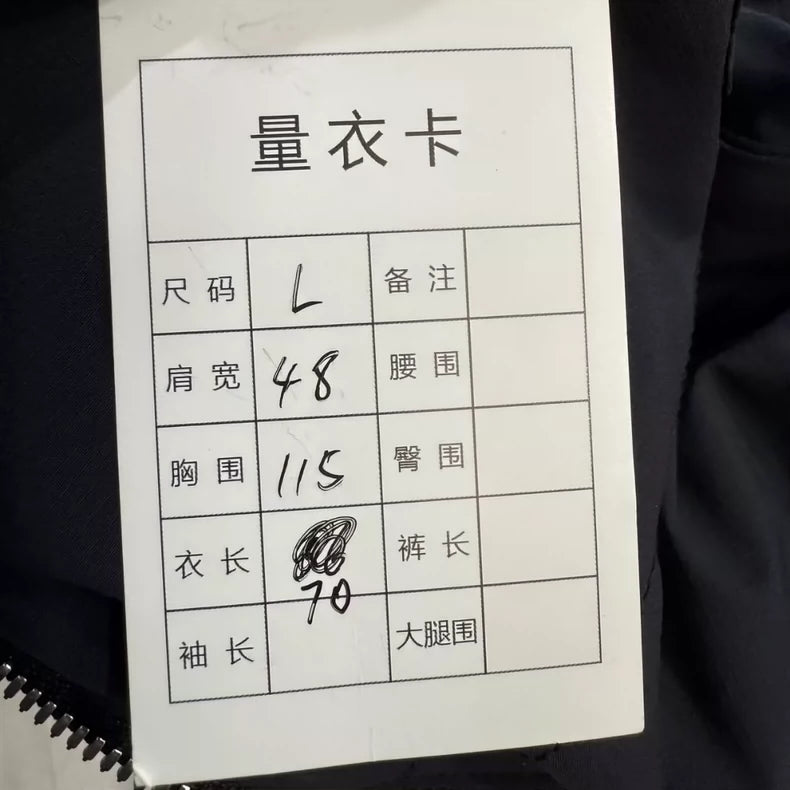 量衣卡
尺码 L 备注
肩宽 48 腰围
胸围 115 臀围
衣长 70 裤长
袖长 大腿围